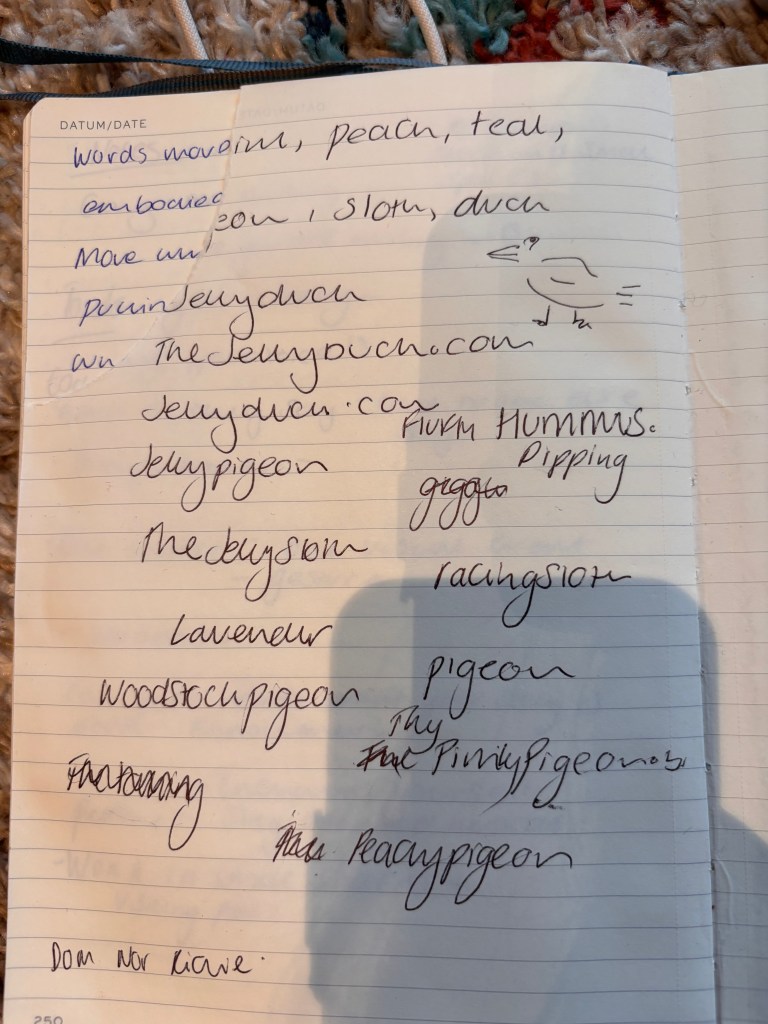 DATUM/DATE
Words move
peach, teal,
embodied
sloth, duck
Move
Jellyduck
TheJellyDuck.com
Jellyduck.com
Hummus.
Jellypigeon
Dipping
giggle
TheJellysloth
racingsloth
Lavender
pigeon
Woodstockpigeon
Thy
Peachypigeon
Dom Nor
250